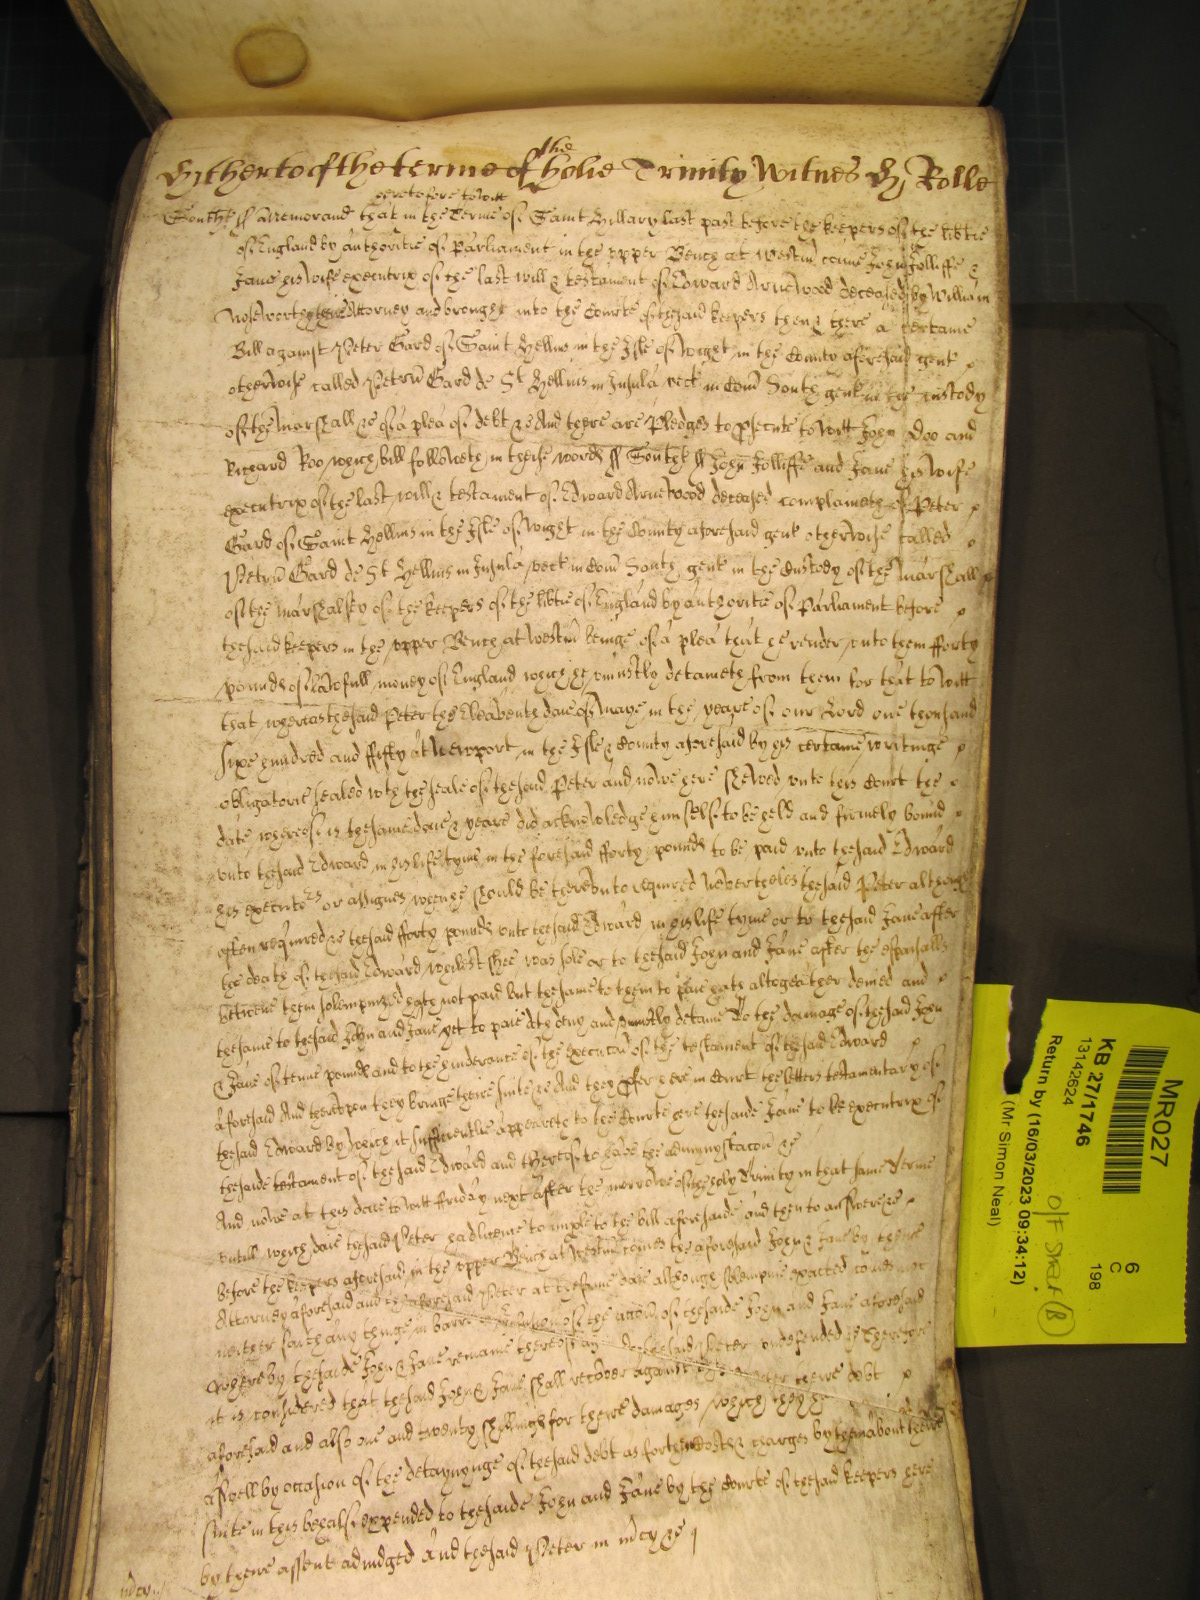 Hitherto of the terme of the holie Trinity Witnes H Rolle
heretofore to witt
South ss Memorand that in the Terme of Saint Hillary last past before the keepers of the libtie
of England by authoritie of Parliament in the upper Bench at Westm came John Jolliffe &
Jane his wife executrix of the last will & testament of Edward Arnewood deceased by William
Noseworthy their Attorney and brought into the Courte of the said keepers then & there a certaine
Bill against Peter Gard of Saint Hellins in the Isle of Wight in the County aforesaid gent
otherwise called Petru Gard de St Hellins in Insula vect in Com South gent in the custody
of the Marshall &c of a plea of debt &c And there are Pledges to psecute to witt John Doo and
Richard Roo which bill followeth in theise words ss South ss John Jolliffe and Jane his wife
executrix of the last will & testament of Edward Arnewood deceased complaineth of Peter
Gard of Saint Hellins in the Isle of Wight in the County aforesaid gent otherwise called
Petru Gard de St Hellins in Insula vect in Com South gent in the Custody of the Marshall
of the Marshalsey of the keepers of the libtie of England by authoritie of Parliament before
the said keepers in the upper Bench at Westm beinge of a plea that he render unto them fforty
pounds of lawfull money of England which he uniustly detaineth from them for that to witt
that whereas the said Peter the Eleaventh daie of Maye in the yeare of our Lord one thousand
sixe hundred and ffifty at Newport in the Isle & County aforesaid by his certaine writinge
obligatorie sealed wth the seale of the said Peter and nowe here shewed unto this Court the
date whereof is the same daie & yeare did acknowledge himselfe to be held and firmely bound
unto the said Edward in his life tyme in the foresaid fforty pounds to be paid unto the said Edward
his executors or assignes when he should be thereunto required Neverthelesse the said Peter although
often required &c the said fforty pounds unto the said Edward in his life tyme or to the said Jane after
the death of the said Edward whilest shee was sole or to the said John and Jane after the espousalls
betweene them solempnized hath not paid but the same to them to paie hath altogeather denied and
the same to the said John and Jane yet to paie doth deny and uniustly detaine To the damage of the said John
& Jane of tenne pounds and to the hinderance of the execucon of the testament of the said Edward
aforesaid And thereupon they bringe theire suite &c And they pfer here in Court the letters testamentary of
the said Edward by which it sufficientlie appeareth to the Courte here the saide Jane to be executrix of
the saide testament of the said Edward and thereof to have the adminystracon &c
And nowe at this daie to witt ffriday next after the morrowe of the holy Trinity in that same Terme
untill which daie the said Peter had licence to imple to the bill aforesaide and then to answere &c
before the keepers aforesaid in the upper Bench at Westm comes the aforesaid John & Jane by theire
Attorney aforesaid and the aforesaid Peter at the same daie although solempne exacted comes not
neither saith any thinge in barre of the accon of the saide John and Jane aforesaid
whereby the saide John & Jane remaine thereof the said Peter undefended &c Therefore
it is considered that the said John & Jane shall recover against Peter theire debt
aforesaid and also one and twenty shillings for theire damages which they
aswell by occasion of the detayninge of the said debt as for theire Costs & charges by them about theire
suite in this behalfe expended to the saide John and Jane by the Courte of the said keepers here
by theire assent adiudged And the said Peter in mcy &c
mcy
MR027
KB 27/1746
13142624
Return by (16/03/2023 09:34:12)
(Mr Simon Neal)
6
C
198